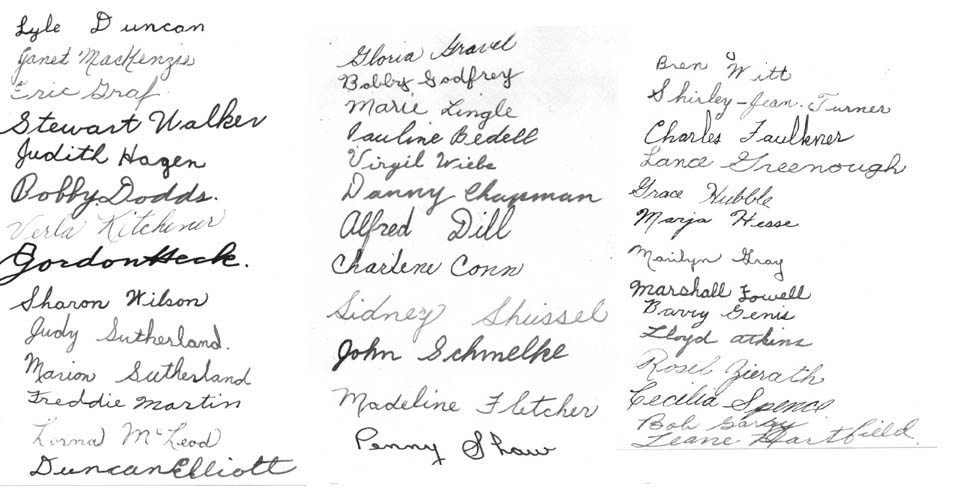 Lyle Duncan
Janet MacKenzie
Eric Graf
Stewart Walker
Judith Hagen
Bobby Dodds.
Verla Kitchener
Gordon Heck.
Sharon Wilson
Judy Sutherland.
Marion Sutherland
Freddie Martin
Lorna McLeod
Duncan Elliott
Gloria Gravel
Bobby Godfrey
Marie Lingle
Pauline Bedell
Virgil Wiebe
Danny Chapman
Alfred Dill
Charlene Conn
Sidney Shissel
John Schmelke
Madeline Fletcher
Penny Shaw
Bren Witt
Shirley-Jean Turner
Charles Faulkner
Lance Greenough
Grace Hubble
Marja Hesse
Marilyn Gray
Marshall Fowell
Barry Genis
Lloyd Atkins
Rosel Zierath
Cecilia Spence
Bob
Leane Hartfield.